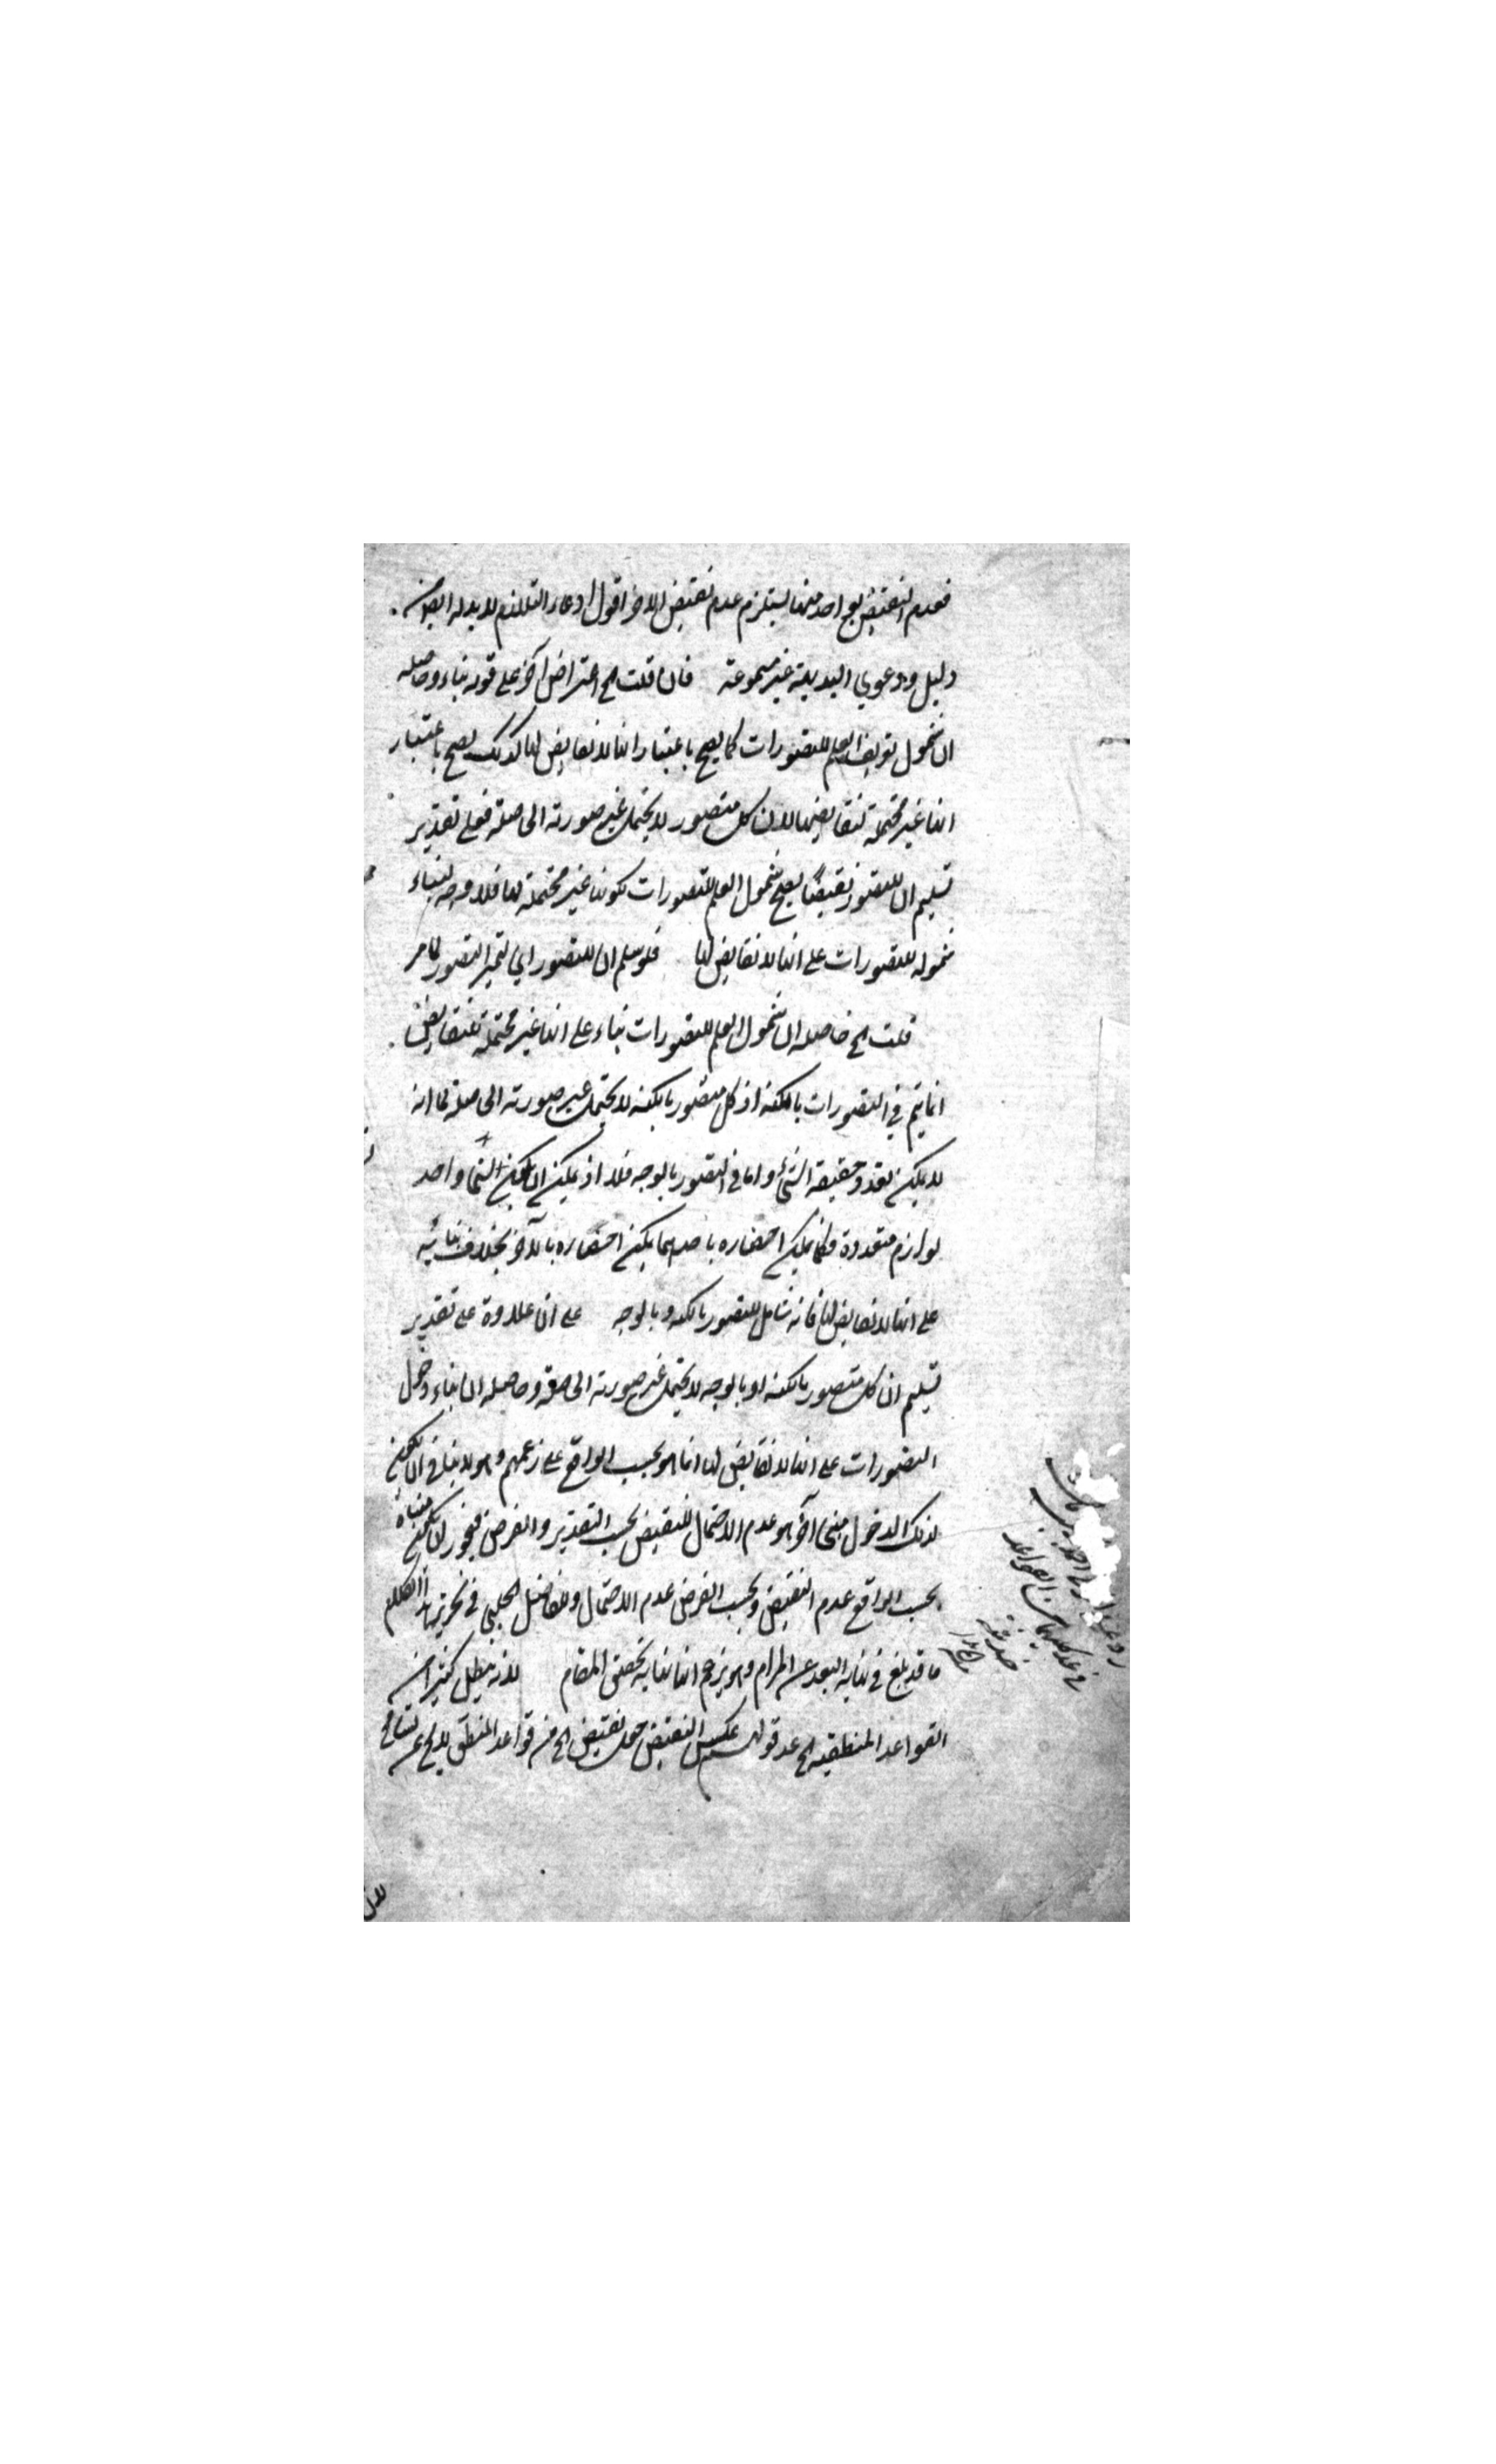 فعدم النقيض لواحد منهما يستلزم عدم نقيض الاخر اقول ادعاء التلازم لا بد له ايضا من
دليل ودعوي البديهة غير مسموعة فان قلت الخ اعتراض آخر على قوله بناء وحاصله
ان شمول تعريف العلم للتصورات كما يصح باعتبار انها لا نقايض لها كذلك يصح باعتبار
انها غير محتملة لنقايضها لان كل متصور لا يحتمل غير صورته الحاصلة فعلى تقدير
تسليم ان للتصور نقيضًا يصح شمول العلم للتصورات لكونها غير محتملة لها فلا وجه لبناء
شموله للتصورات على انها لا نقايض لها فلو سلم ان للتصور اي لتميز التصور كما مر
قلت الخ حاصله ان شمول العلم للتصورات بناء على انها غير محتملة لنقايض
انما يتم في التصورات بالكنه اذ كل متصور بالكنه لا يحتمل غير صورته الحاصلة لما انه
لا يمكن تعدد حقيقة الشئ واما في التصور بالوجه فلا اذ يمكن ان يكون لشئ واحد
لوازم متعددة فكما يمكن احضاره باحدهما يمكن احضاره بالآخر بخلاف بنائه
على انها لا نقايض لها فانه شامل للتصور بالكنه وبالوجه على ان علاوة على تقدير
تسليم ان كل متصور بالكنه او بالوجه لا يحتمل غير صورته الحاصلة وحاصله ان بناء دخول
التصورات على انها لا نقايض لها انما هو بحسب الواقع على زعمهم وهو لا ينافي ان يكون
لذلك الدخول مبنى آخر هو عدم الاحتمال للنقيض بحسب التقدير والفرض فيجوز ان يكون مبناه
بحسب الواقع عدم النقيض وبحسب الفرض عدم الاحتمال وللفاضل الچلبي في تحرير هذا الكلام
ما قد بلغ في نهاية البعد عن المرام وهو يزعم انها نهاية تحقق المقام لانه يبطل كثيرا من
القواعد المنطقية الخ عد قولهم عكس النقيض جعل نقيض الخ من قواعد المنطق لا يخ عن تسامح
في عد كليهما من القواعد